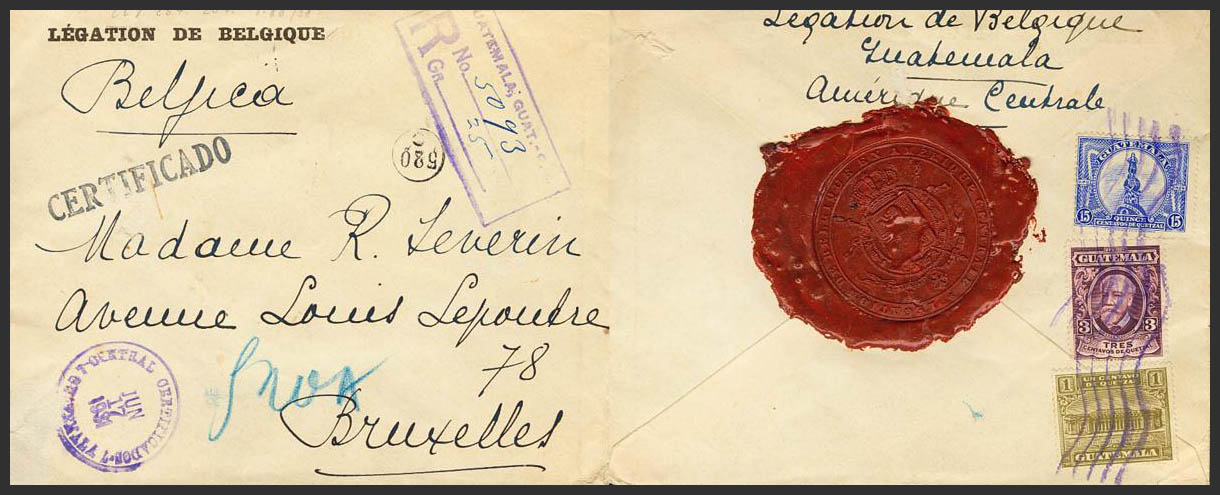 LÉGATION DE BELGIQUE
Belgica
CERTIFICADO
R
GUATEMALA, GUAT.
No. 5093
GR. 25
520
Madame R. Severin
Avenue Louis Lepoutre
78
Bruxelles
CENTRAL CERTIFICADOS
JUN
1931
Légation de Belgique
Guatemala
Amérique Centrale
GUATEMALA
15 15
QUINCE
CENTAVOS DE QUETZAL
GUATEMALA
3 3
TRES
CENTAVOS DE QUETZAL
1 UN CENTAVO 1
DE QUETZAL
GUATEMALA